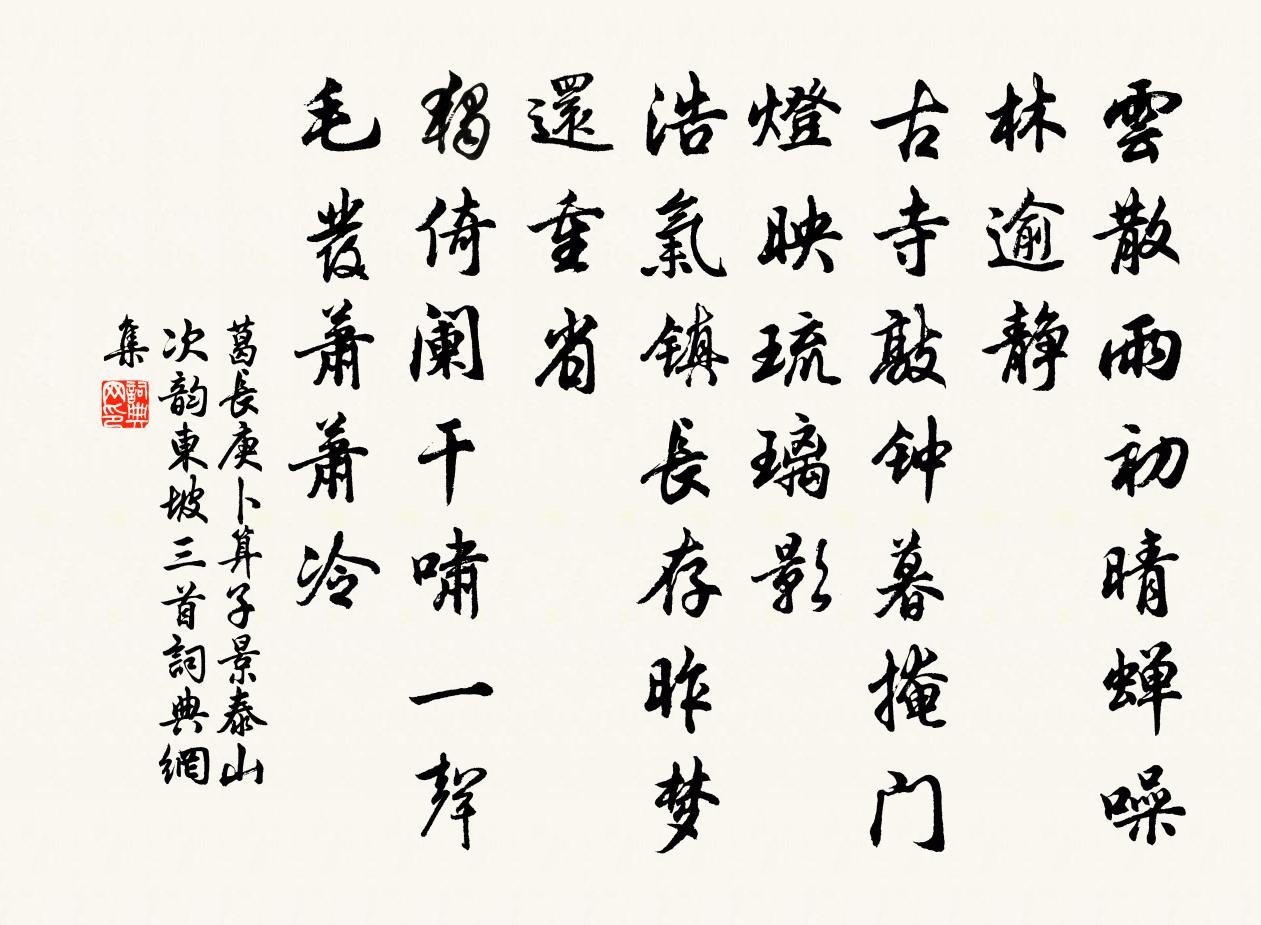 雲散雨初晴蟬噪
林逾静
古寺敲钟暮掩门
燈映琉璃影
浩氣镇長存昨梦
還重省
獨倚阑干啸一聲
毛發萧萧冷
葛長庚卜算子景泰山
次韵東坡三首詞典網
集
詞典網印